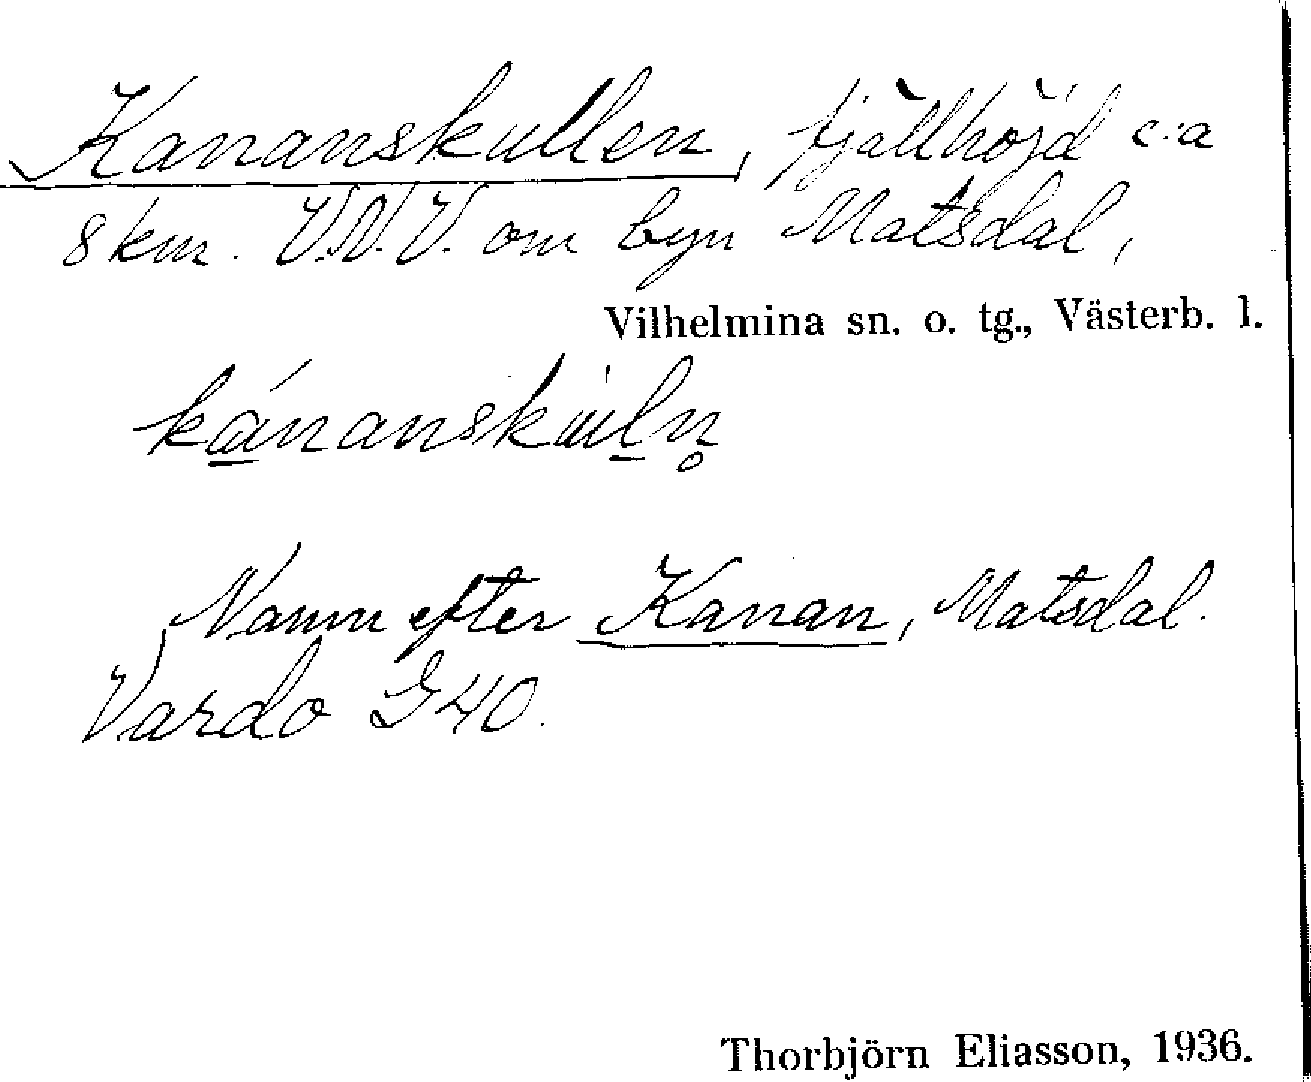 Kananskullen, fjällhöjd c:a
8 km. V.N.V. om byn Matsdal,
Vilhelmina sn. o. tg., Västerb. l.
ká̱nanskùḻn̥
Namn efter Kanan, Matsdal.
Vardo G40.
Thorbjörn Eliasson, 1936.